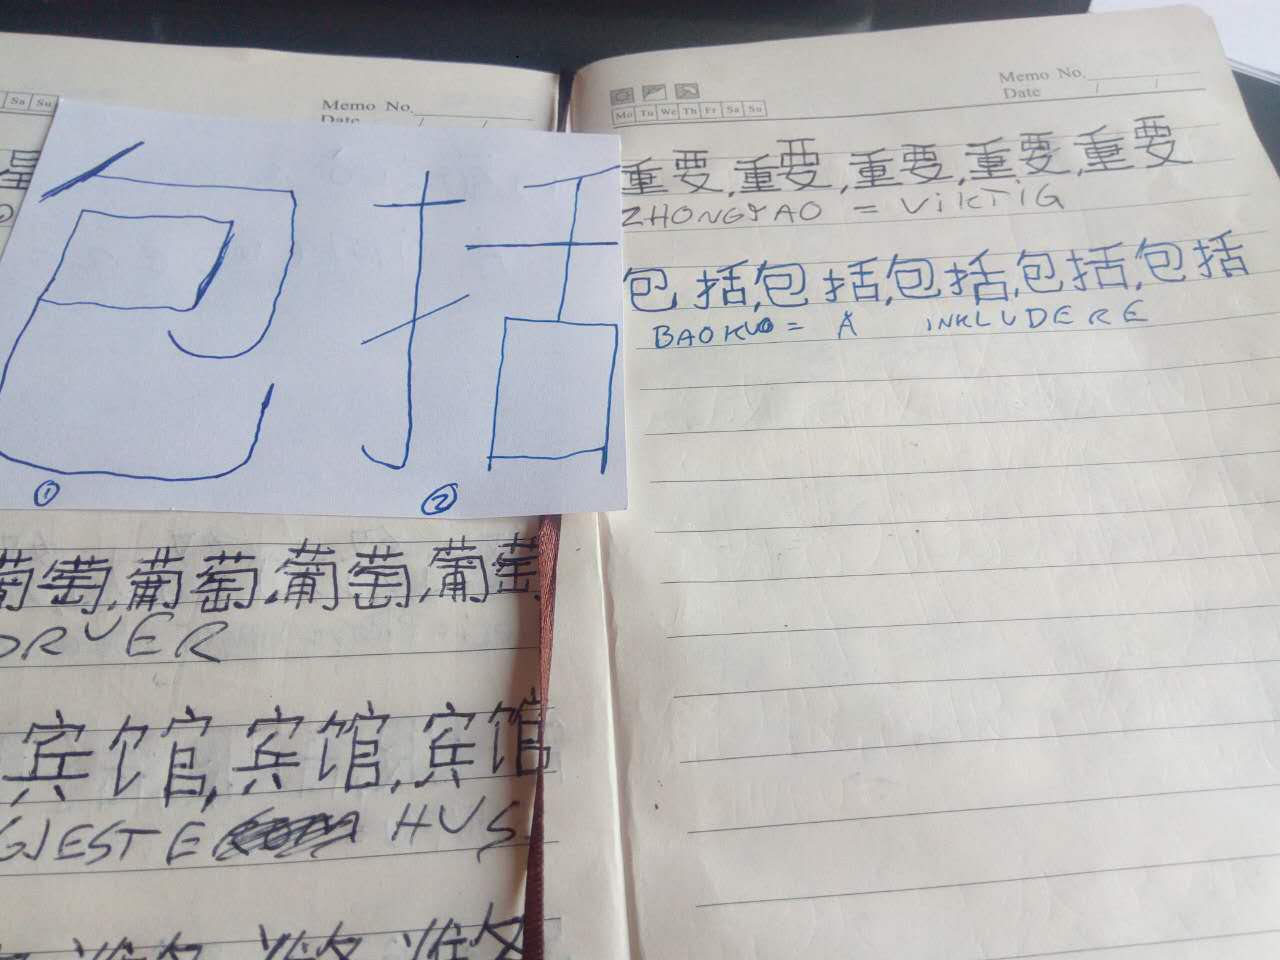 Sa Su
Memo No.
Date
包括
① ②
葡萄,葡萄,葡萄,葡萄
DRUER
宾馆,宾馆,宾馆
GJESTE HUS
Memo No.
Date
Mo Tu We Th Fr Sa Su
重要,重要,重要,重要,重要
ZHONGYAO = ViKTiG
包括,包括,包括,包括,包括
BAOKUO = Å INKLUDERE